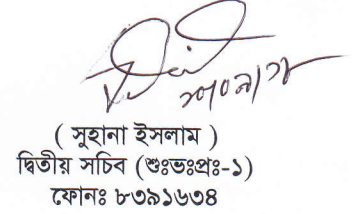 ( সুহানা ইসলাম )
দ্বিতীয় সচিব (শুঃভঃপ্রঃ-১)
ফোনঃ ৮৩৯১৬৩৪